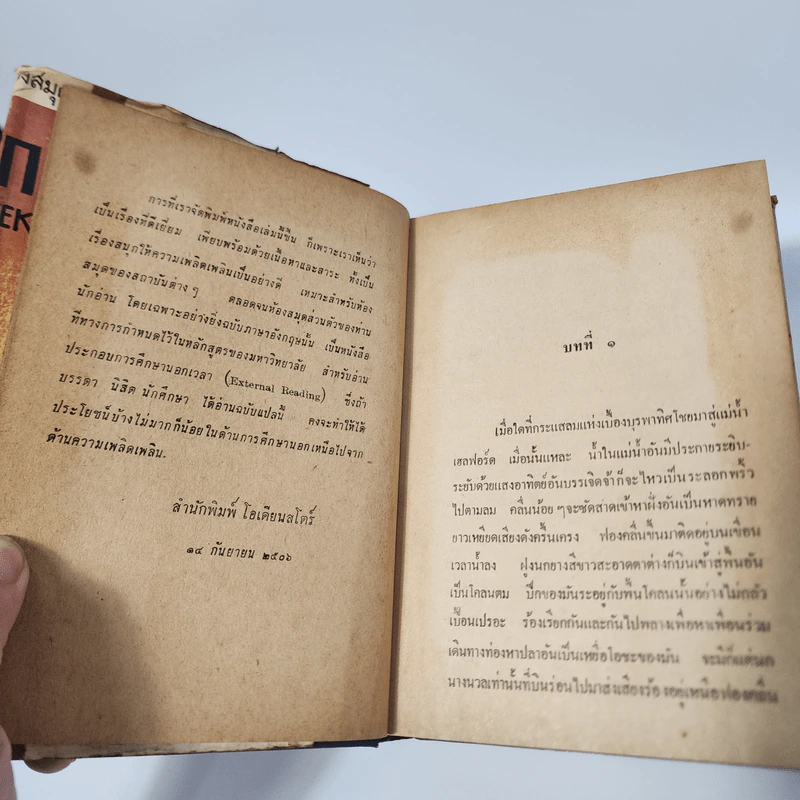 งสมุด
ก
EK
การที่เราจัดพิมพ์หนังสือเล่มนี้ขึ้น ก็เพราะเราเห็นว่า
เป็นเรื่องที่ดีเยี่ยม เพียบพร้อมด้วยเนื้อหาและสาระ ทั้งเป็น
เรื่องสนุกให้ความเพลิดเพลินเป็นอย่างดี เหมาะสำหรับห้อง
สมุดของสถาบันต่าง ๆ ตลอดจนห้องสมุดส่วนตัวของท่าน
นักอ่าน โดยเฉพาะอย่างยิ่งฉบับภาษาอังกฤษนั้น เป็นหนังสือ
ที่ทางการกำหนดไว้ในหลักสูตรของมหาวิทยาลัย สำหรับอ่าน
ประกอบการศึกษานอกเวลา (External Reading) ซึ่งถ้า
บรรดา นิสิต นักศึกษา ได้อ่านฉบับแปลนี้ คงจะทำให้ได้
ประโยชน์บ้างไม่มากก็น้อยในด้านการศึกษานอกเหนือไปจาก
ด้านความเพลิดเพลิน.
สำนักพิมพ์ โอเดียนสโตร์
๑๔ กันยายน ๒๕๐๖
บทที่ ๑
เมื่อใดที่กระแสลมแห่งเบื้องบุรพาทิศโชยมาสู่แม่น้ำ
เฮลฟอร์ด เมื่อนั้นแหละ น้ำในแม่น้ำอันมีประกายระยิบ-
ระยับด้วยแสงอาทิตย์อันบรรเจิดจ้าก็จะไหวเป็นระลอกพริ้ว
ไปตามลม คลื่นน้อย ๆ จะซัดสาดเข้าหาฝั่งอันเป็นหาดทราย
ยาวเหยียดเสียงดังครื้นเครง ฟองคลื่นขึ้นมาติดอยู่บนเขื่อน
เวลาน้ำลง ฝูงนกยางสีขาวสะอาดตาต่างก็บินเข้าสู่พื้นอัน
เป็นโคลนตม ปีกของมันระอยู่กับพื้นโคลนนั้นอย่างไม่กลัว
เปื้อนเปรอะ ร้องเรียกกันและกันไปพลางเพื่อหาเพื่อนร่วม
เดินทางท่องหาปลาอันเป็นเหยื่อโอชะของมัน จะมีก็แต่นก
นางนวลเท่านั้นที่บินร่อนไปมาส่งเสียงร้องอยู่เหนือฟองคลื่น